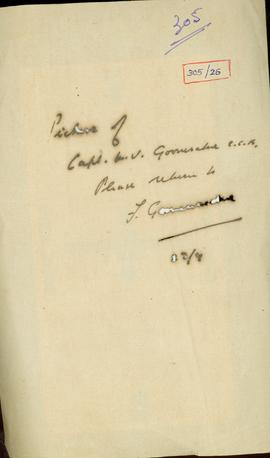 305
305/26
Picture of
Capt. M. V. Goonesekere C.C.A.
Please return to
F. Goonesekere